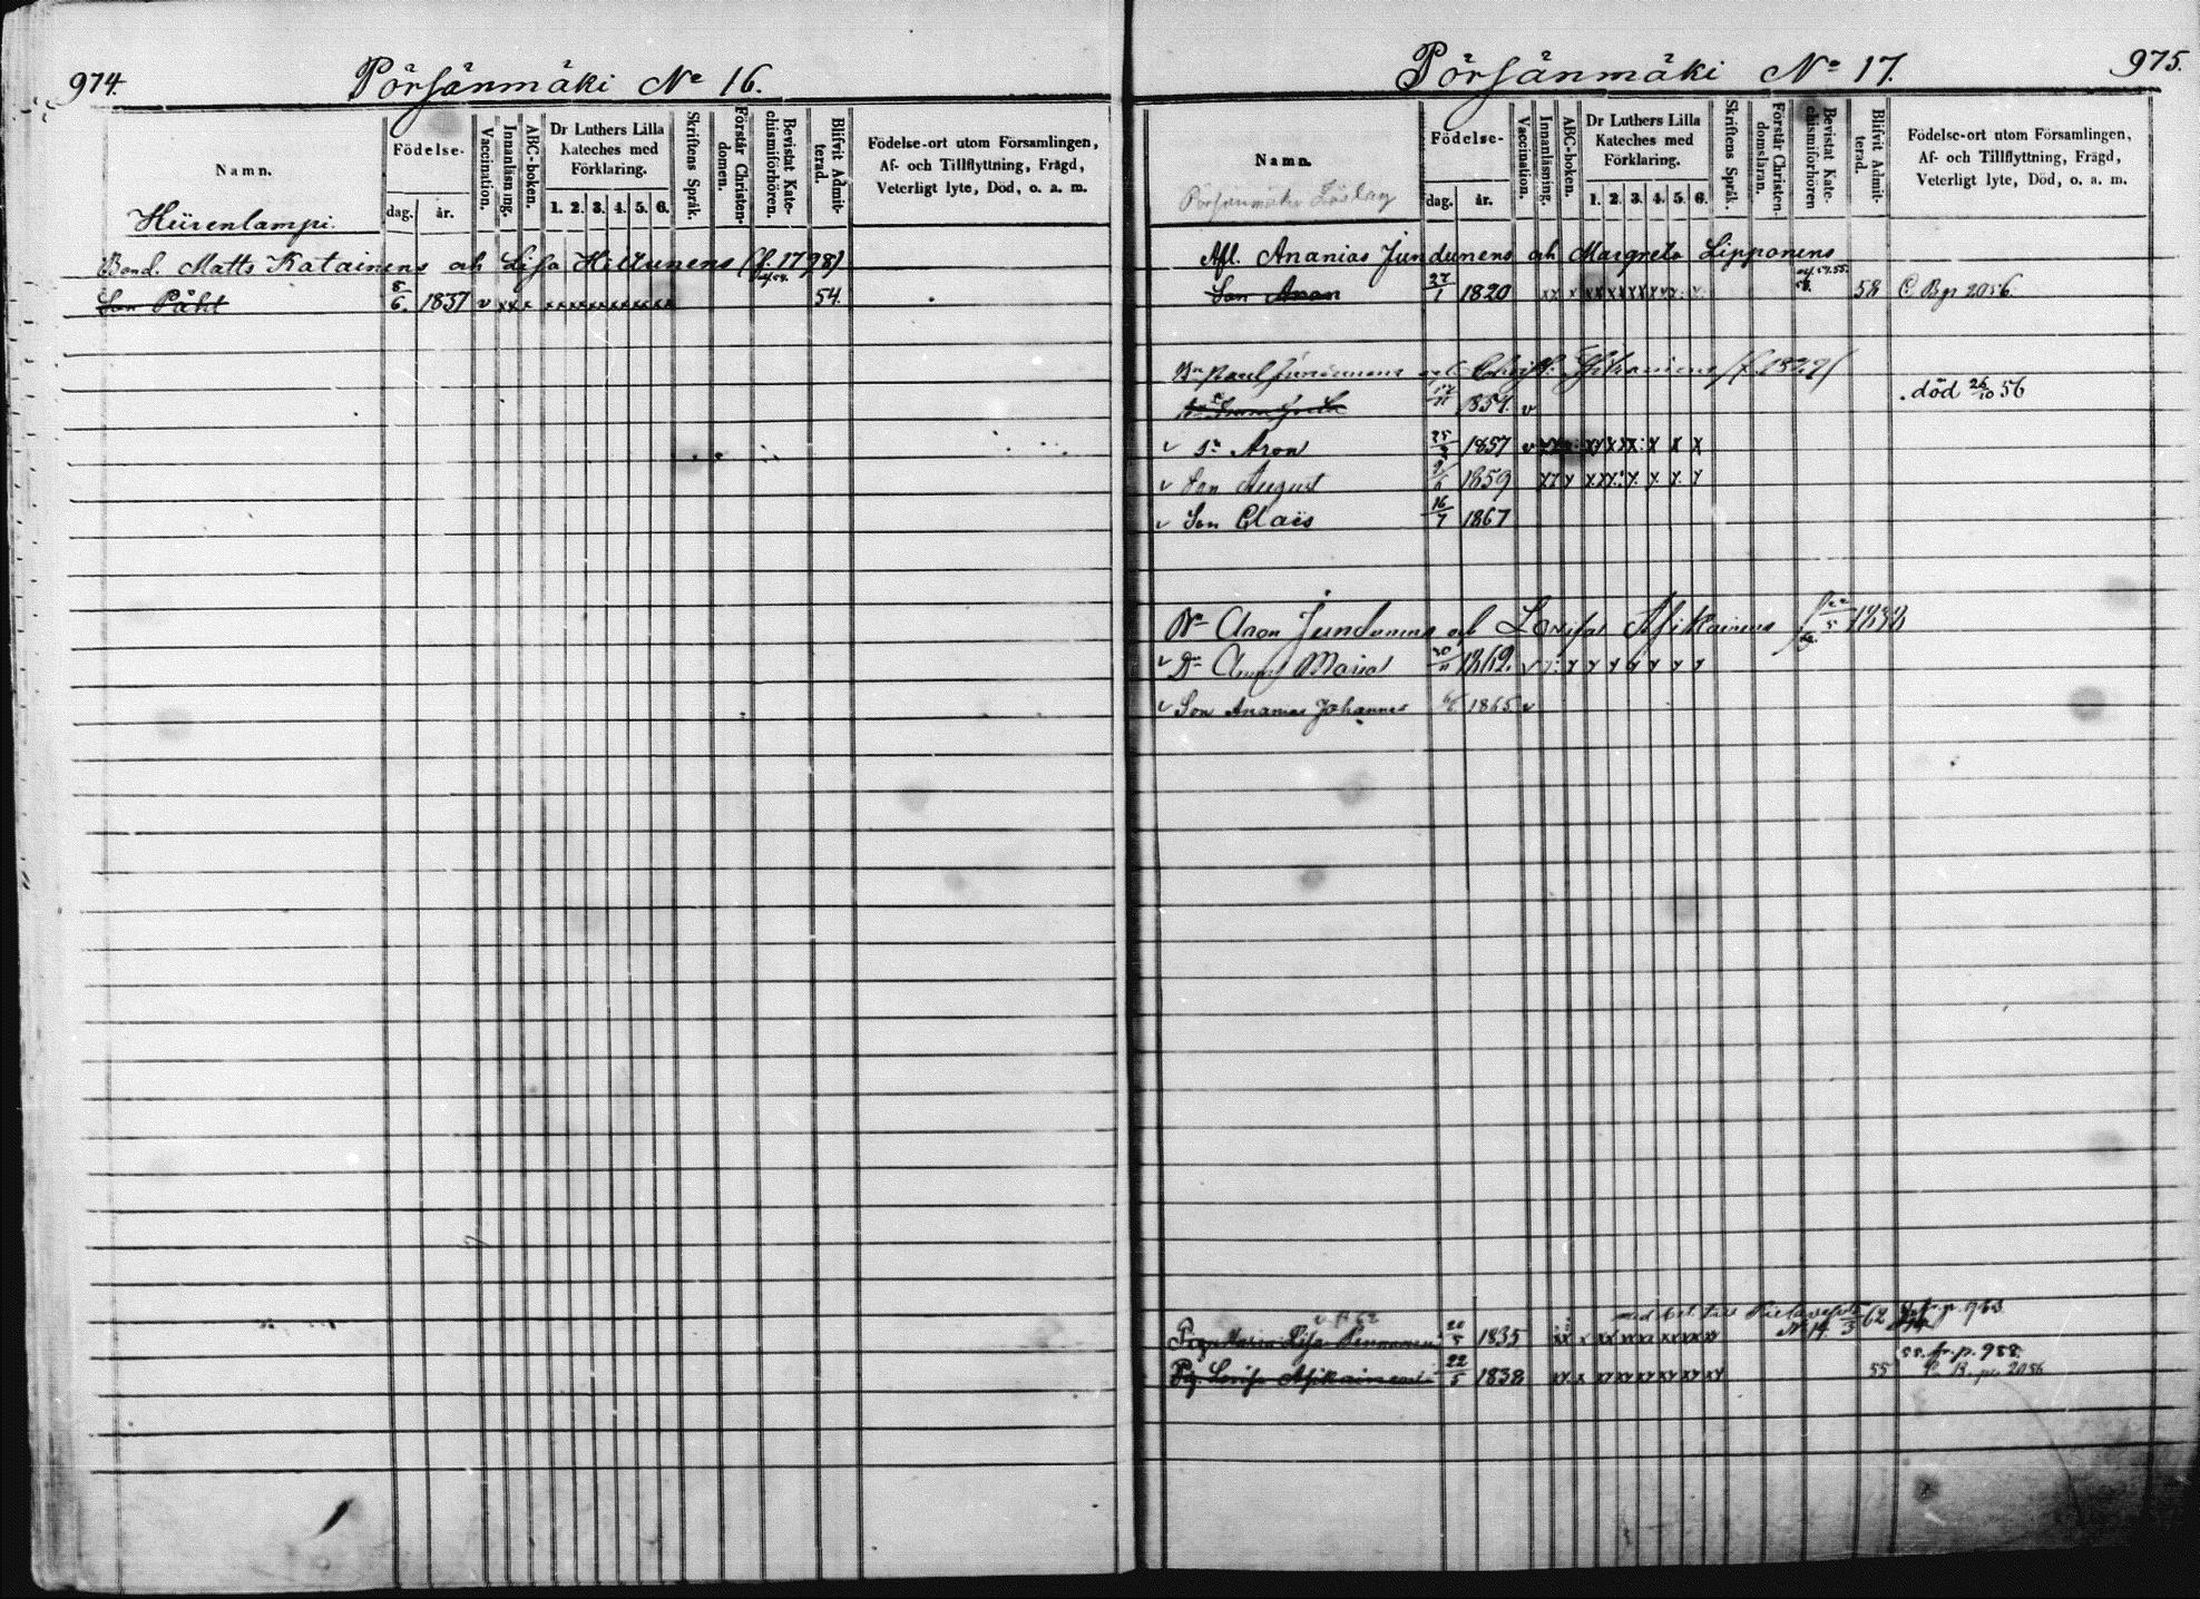 974.
Pörsänmäki No 16.
Namn.
Födelse-
dag. år.
Vaccination.
Innanläsning.
ABC-boken.
Dr Luthers Lilla
Kateches med
Förklaring.
1. 2. 3. 4. 5. 6.
Skriftens Språk.
Förstår Christen-
domen.
Bevistat Kate-
chismiförhören.
Blifvit Admit-
terad.
Födelse-ort utom Församlingen,
Af- och Tillflyttning, Frägd,
Veterligt lyte, Död, o. a. m.
Hiirenlampi.
Bond. Matts Katainens och Lisa Hiltunens (f. 1798)
Son Påhl 8/6. 1837 v xx x xx xx xx xx xx xx 54.
Pörsänmäki No 17.
975.
Namn.
Födelse-
dag. år.
Vaccination.
Innanläsning.
ABC-boken.
Dr Luthers Lilla
Kateches med
Förklaring.
1. 2. 3. 4. 5. 6.
Skriftens Språk.
Förstår Christen-
domslaran.
Bevistat Kate-
chismiförhören
Blifvit Admit-
terad.
Födelse-ort utom Församlingen,
Af- och Tillflyttning, Frägd,
Veterligt lyte, Död, o. a. m.
Pörsänmäki
Afl. Ananias Jundunens och Margreta Lipponens
Son Aron 27/1 1820 58 C. B. p. 2056.
Paul
1854. v död 26/10 56
v Sn Aron 25/3 1857 v
v Son August 1859
v Son Claës 16/7 1867
Aron Jundunens och Lovisa Asikainens
v Dr Anna Maria 1862. v
v Son Ananias Johannes 1865 v
Maria Lisa 20/5 1835 xx x No 14. 62 fr. p. 963
55. fr. p. 988.
Pig. Lovisa Asikainen 22/5 1838 xx x 55 C. B. p. 2056